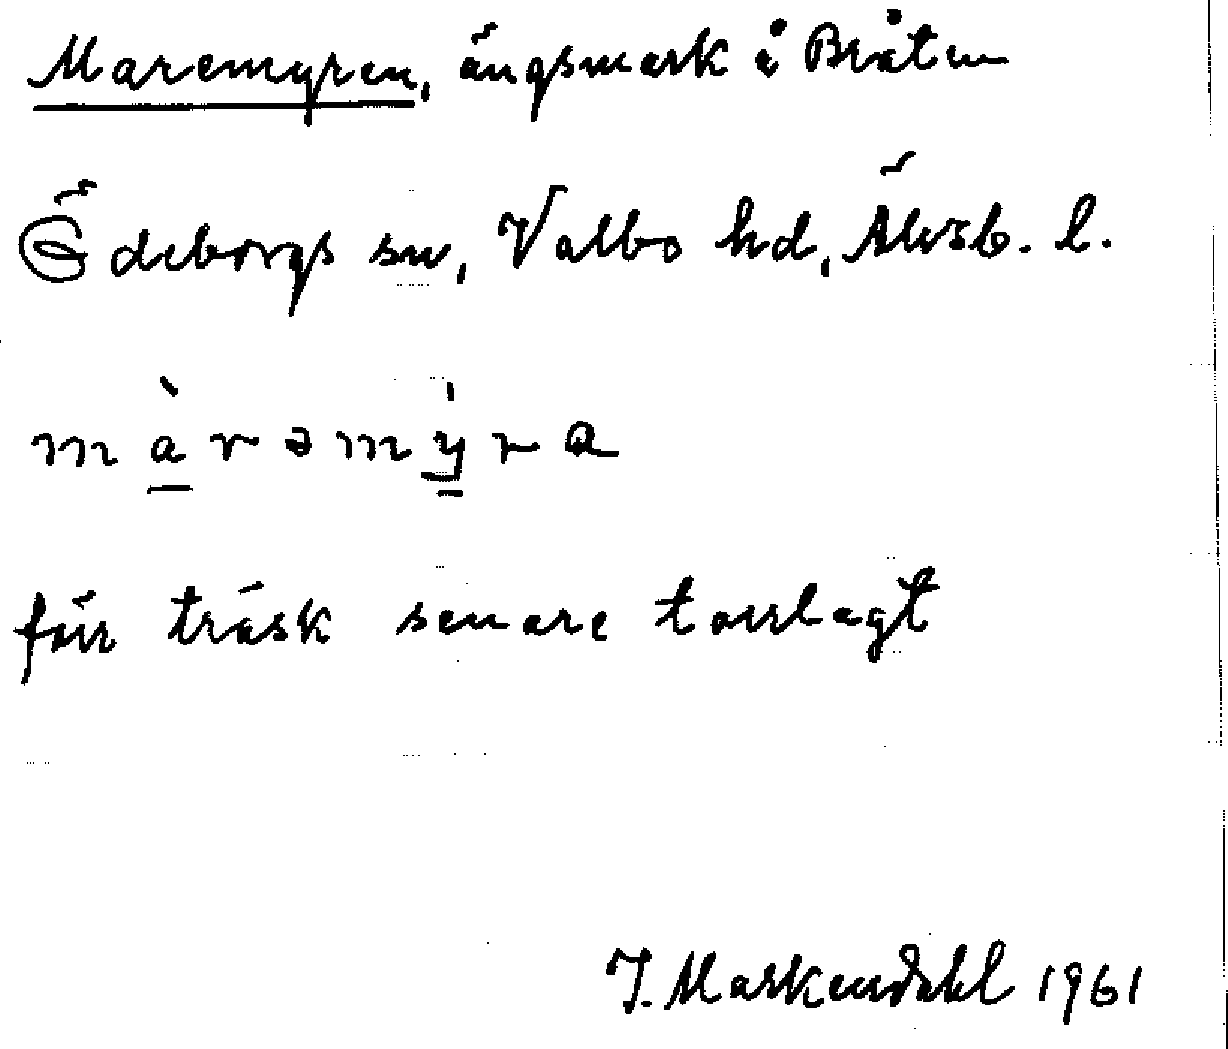 Maremyren, ängsmark å Bråten
Ödeborgs sn, Valbo hd, Älvsb. l.
màrəmy̍ra
förr träsk senare torrlagt
J. Markendahl 1961